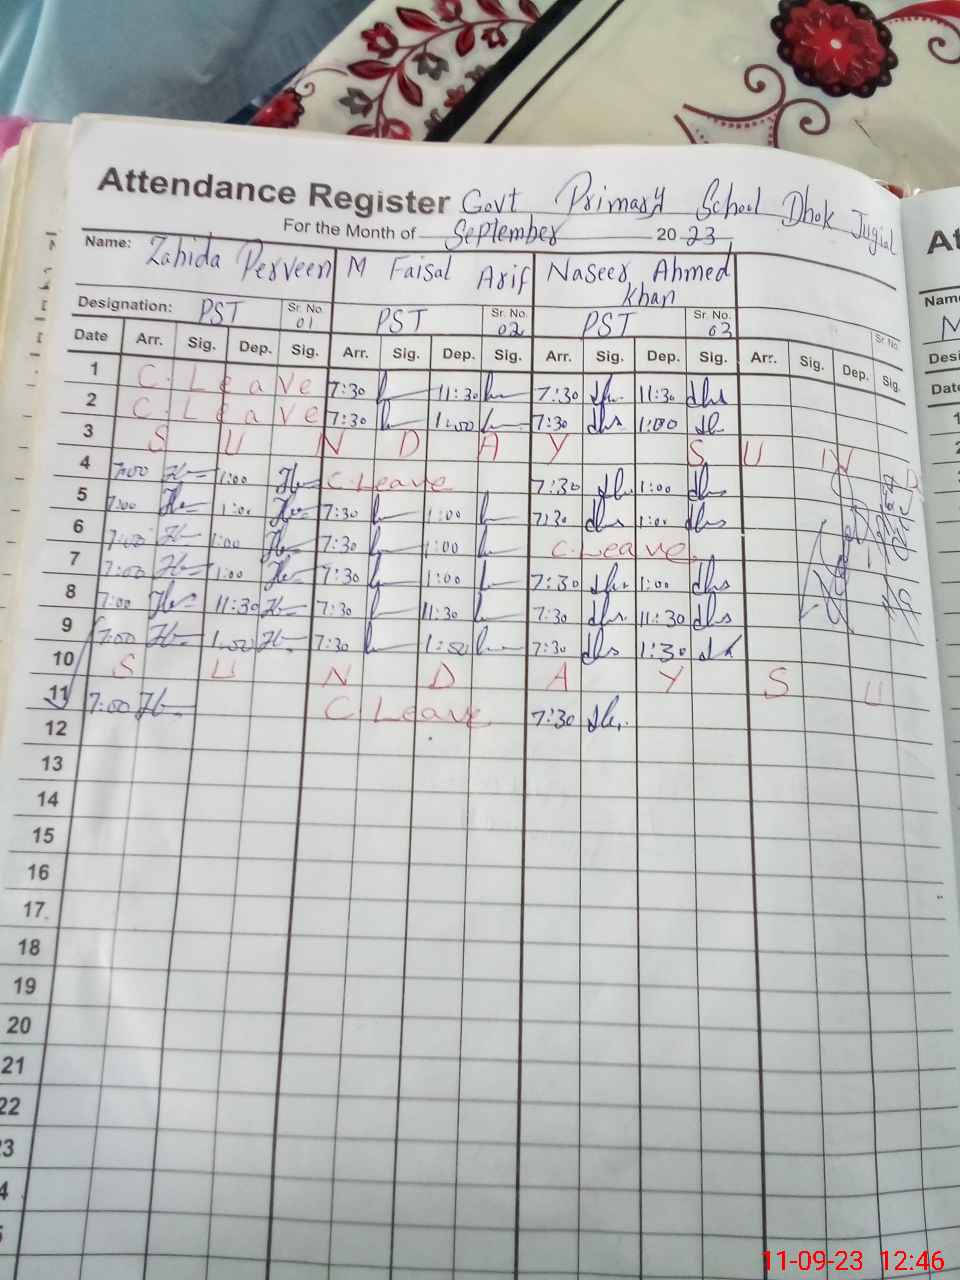 Attendance Register Govt Primary School Dhok Jugial
For the Month of September 20 23
Name: Zahida Perveen M Faisal Arif Naseer Ahmed Khan
Designation: PST Sr. No. 01 PST Sr. No. 02 PST Sr. No. 03 Sr. No.
Date Arr. Sig. Dep. Sig. Arr. Sig. Dep. Sig. Arr. Sig. Dep. Sig. Arr. Sig. Dep. Sig.
1 C. Leave 7:30 11:30 7:30 11:30
2 C. Leave 7:30 1:00 7:30 1:00
3 S U N D A Y S U N D
4 7:00 1:00 C. Leave 7:30 1:00
5 7:00 1:00 7:30 1:00 7:30 1:00
6 7:00 1:00 7:30 1:00 C. Leave
7 7:00 1:00 7:30 1:00 7:30 1:00
8 7:00 11:30 7:30 11:30 7:30 11:30
9 7:00 1:00 7:30 1:00 7:30 1:30
10 S U N D A Y S U
11 7:00 C Leave 7:30
12
13
14
15
16
17
18
19
20
21
22
11-09-23 12:46